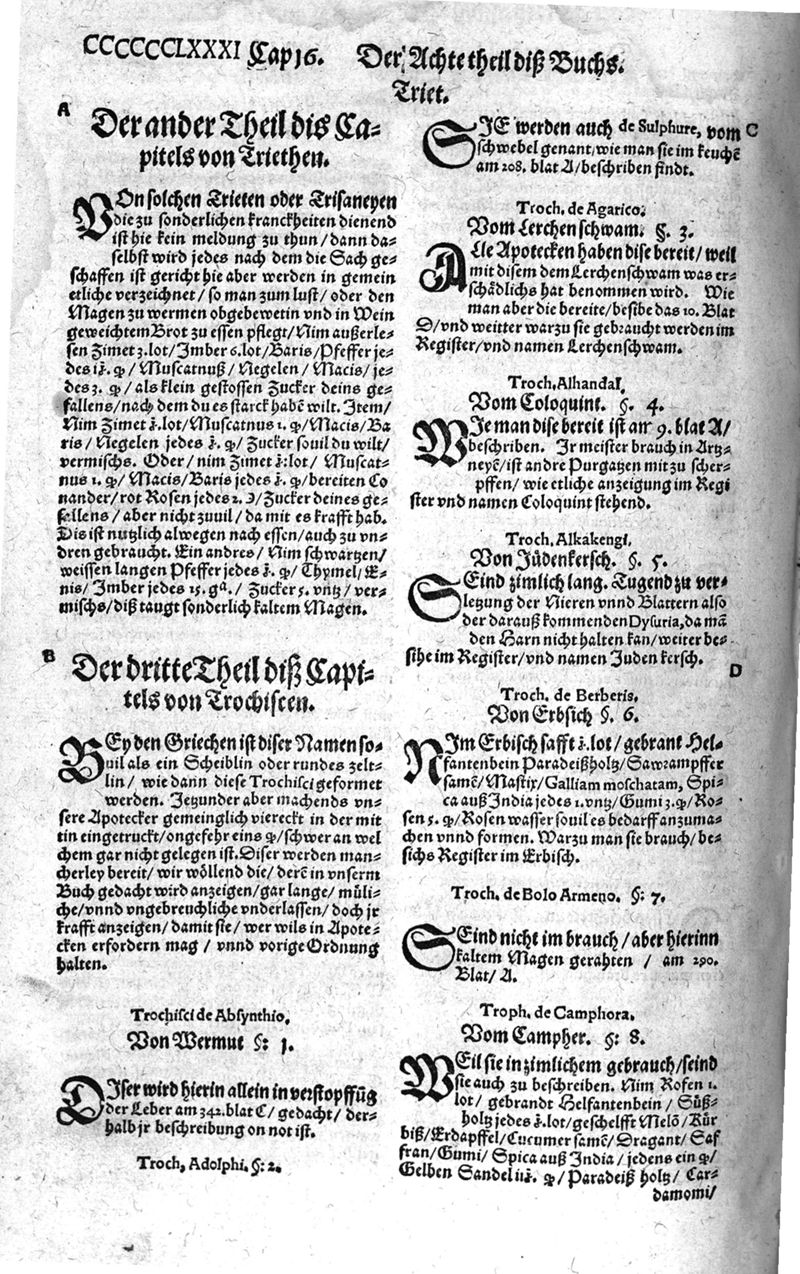 CCCCCCLXXXI Cap 16. Der Achte theil diß Buchs.
Triet.
A
Der ander Theil dis Ca-
pitels von Triethen.
VOn solchen Trieten oder Trisaneyen
die zu sonderlichen kranckheiten dienend
ist hie kein meldung zu thun/dann da-
selbst wird jedes nach dem die Sach ge-
schaffen ist gericht hie aber werden in gemein
etliche verzeichnet/so man zum lust/oder den
Magen zu wermen obgebewetin vnd in Wein
geweichtem Brot zu essen pflegt/Nim außerle-
sen Zimet 3.lot/Imber 6.lot/Baris/Pfeffer je-
des / Muscatnuß/ Negelen/ Macis/ je-
des 3. / als klein gestossen Zucker deins ge-
fallens/nach dem du es starck habē wilt. Item/
Nim Zimet lot/Muscatnus 1. /Macis/Ba
ris/Negelen jedes /Zucker souil du wilt/
vermischs. Oder/nim Zimet lot/ Muscat-
nus 1. / Macis/Baris jedes /bereiten Co
riander/rot Rosen jedes 2. ℈/Zucker deines ge-
fellens/aber nicht zuuil/da mit es krafft hab.
Dis ist nutzlich alwegen nach essen/auch zu vn-
dren gebraucht. Ein andres/Nim schwartzen/
weissen langen Pfeffer jedes / Thymel/E-
nis/Imber jedes 15. / Zucker 5. vntz/ver-
mischs/diß taugt sonderlich kaltem Magen.
B
Der dritte Theil diß Capi-
tels von Trochiscen.
BEy den Griechen ist diser Namen so-
uil als ein Scheiblin oder rundes zelt-
lin/ wie dann diese Trochisci geformet
werden. Jetzunder aber machends vn-
sere Apotecker gemeinglich viereckt in der mit
tin eingetruckt/ongefehr eins /schwer an wel
chem gar nicht gelegen ist. Diser werden man-
cherley bereit/wir wöllend die/derē in vnserm
Buch gedacht wird anzeigen/gar lange/müli-
che/vnnd vngebreuchliche vnderlassen/doch jr
krafft anzeigen/damit sie/wer wils in Apote-
cken erfordern mag/ vnnd vorige Ordnung
halten.
Trochisci de Absynthio.
Von Wermut §. 1.
DIser wird hierin allein in verstopffūg
der Leber am 342. blat C/gedacht/der-
halb jr beschreibung on not ist.
Troch. Adolphi. §: 2.
SIE werden auch de Sulphure, vom C
schwebel genant/wie man sie im keuchē
am 208. blat A/beschriben findt.
Troch. de Agarico.
Vom Lerchenschwam. §. 3.
ALle Apotecken haben dise bereit/weil
mit disem dem Lerchenschwam was er-
schådlichs hat benommen wird. Wie
man aber die bereite/besihe das 10. Blat
D/vnd weitter warzu sie gebraucht werden im
Register/vnd namen Lerchenschwam.
Troch, Alhandal.
Vom Coloquint. §. 4.
WIe man dise bereit ist am 9. blat A/
beschriben. Ir meister brauch in Artz-
neyē/ist andre Purgatzen mit zu scher-
pffen/wie etliche anzeigung im Regi
ster vnd namen Coloquint stehend.
Troch. Alkakengi.
Von Jüdenkersch. §. 5.
SEind zimlich lang. Tugend zu ver-
letzung der Nieren vnnd Blattern also
der darauß kommenden Dysuria, da mā
den Harn nicht halten kan/weiter be-
sihe im Register/vnd namen Juden kersch.
D
Troch. de Berberis.
Von Erbsich §. 6.
NIm Erbisch safft lot/gebrant Hel-
fantenbein Paradeißholtz/Sawrampffer
samē/Mastix/Galliam moschatam, Spi-
ca auß India jedes 1. vntz/Gumi 3. /Ro-
sen 5. /Rosen wasser souil es bedarff anzuma-
chen vnnd formen. Warzu man sie brauch/be-
sichs Register im Erbisch.
Troch. de Bolo Armeno. §: 7.
SEind nicht im brauch/aber hierinn
kaltem Magen gerahten / am 290.
Blat/A.
Troph. de Camphora.
Vom Campher. §: 8.
WEil sie in zimlichem gebrauch/seind
sie auch zu beschreiben. Nim Rosen 1.
lot/ gebrandt Helfantenbein / Süß-
holtz jedes lot/geschelfft Melō/Kür
biß/Erdapffel/Cucumer samē/Dragant/Saf
fran/Gumi/Spica auß India/jedens ein /
Gelben Sandel / Paradeiß holtz/ Car-
damomi/